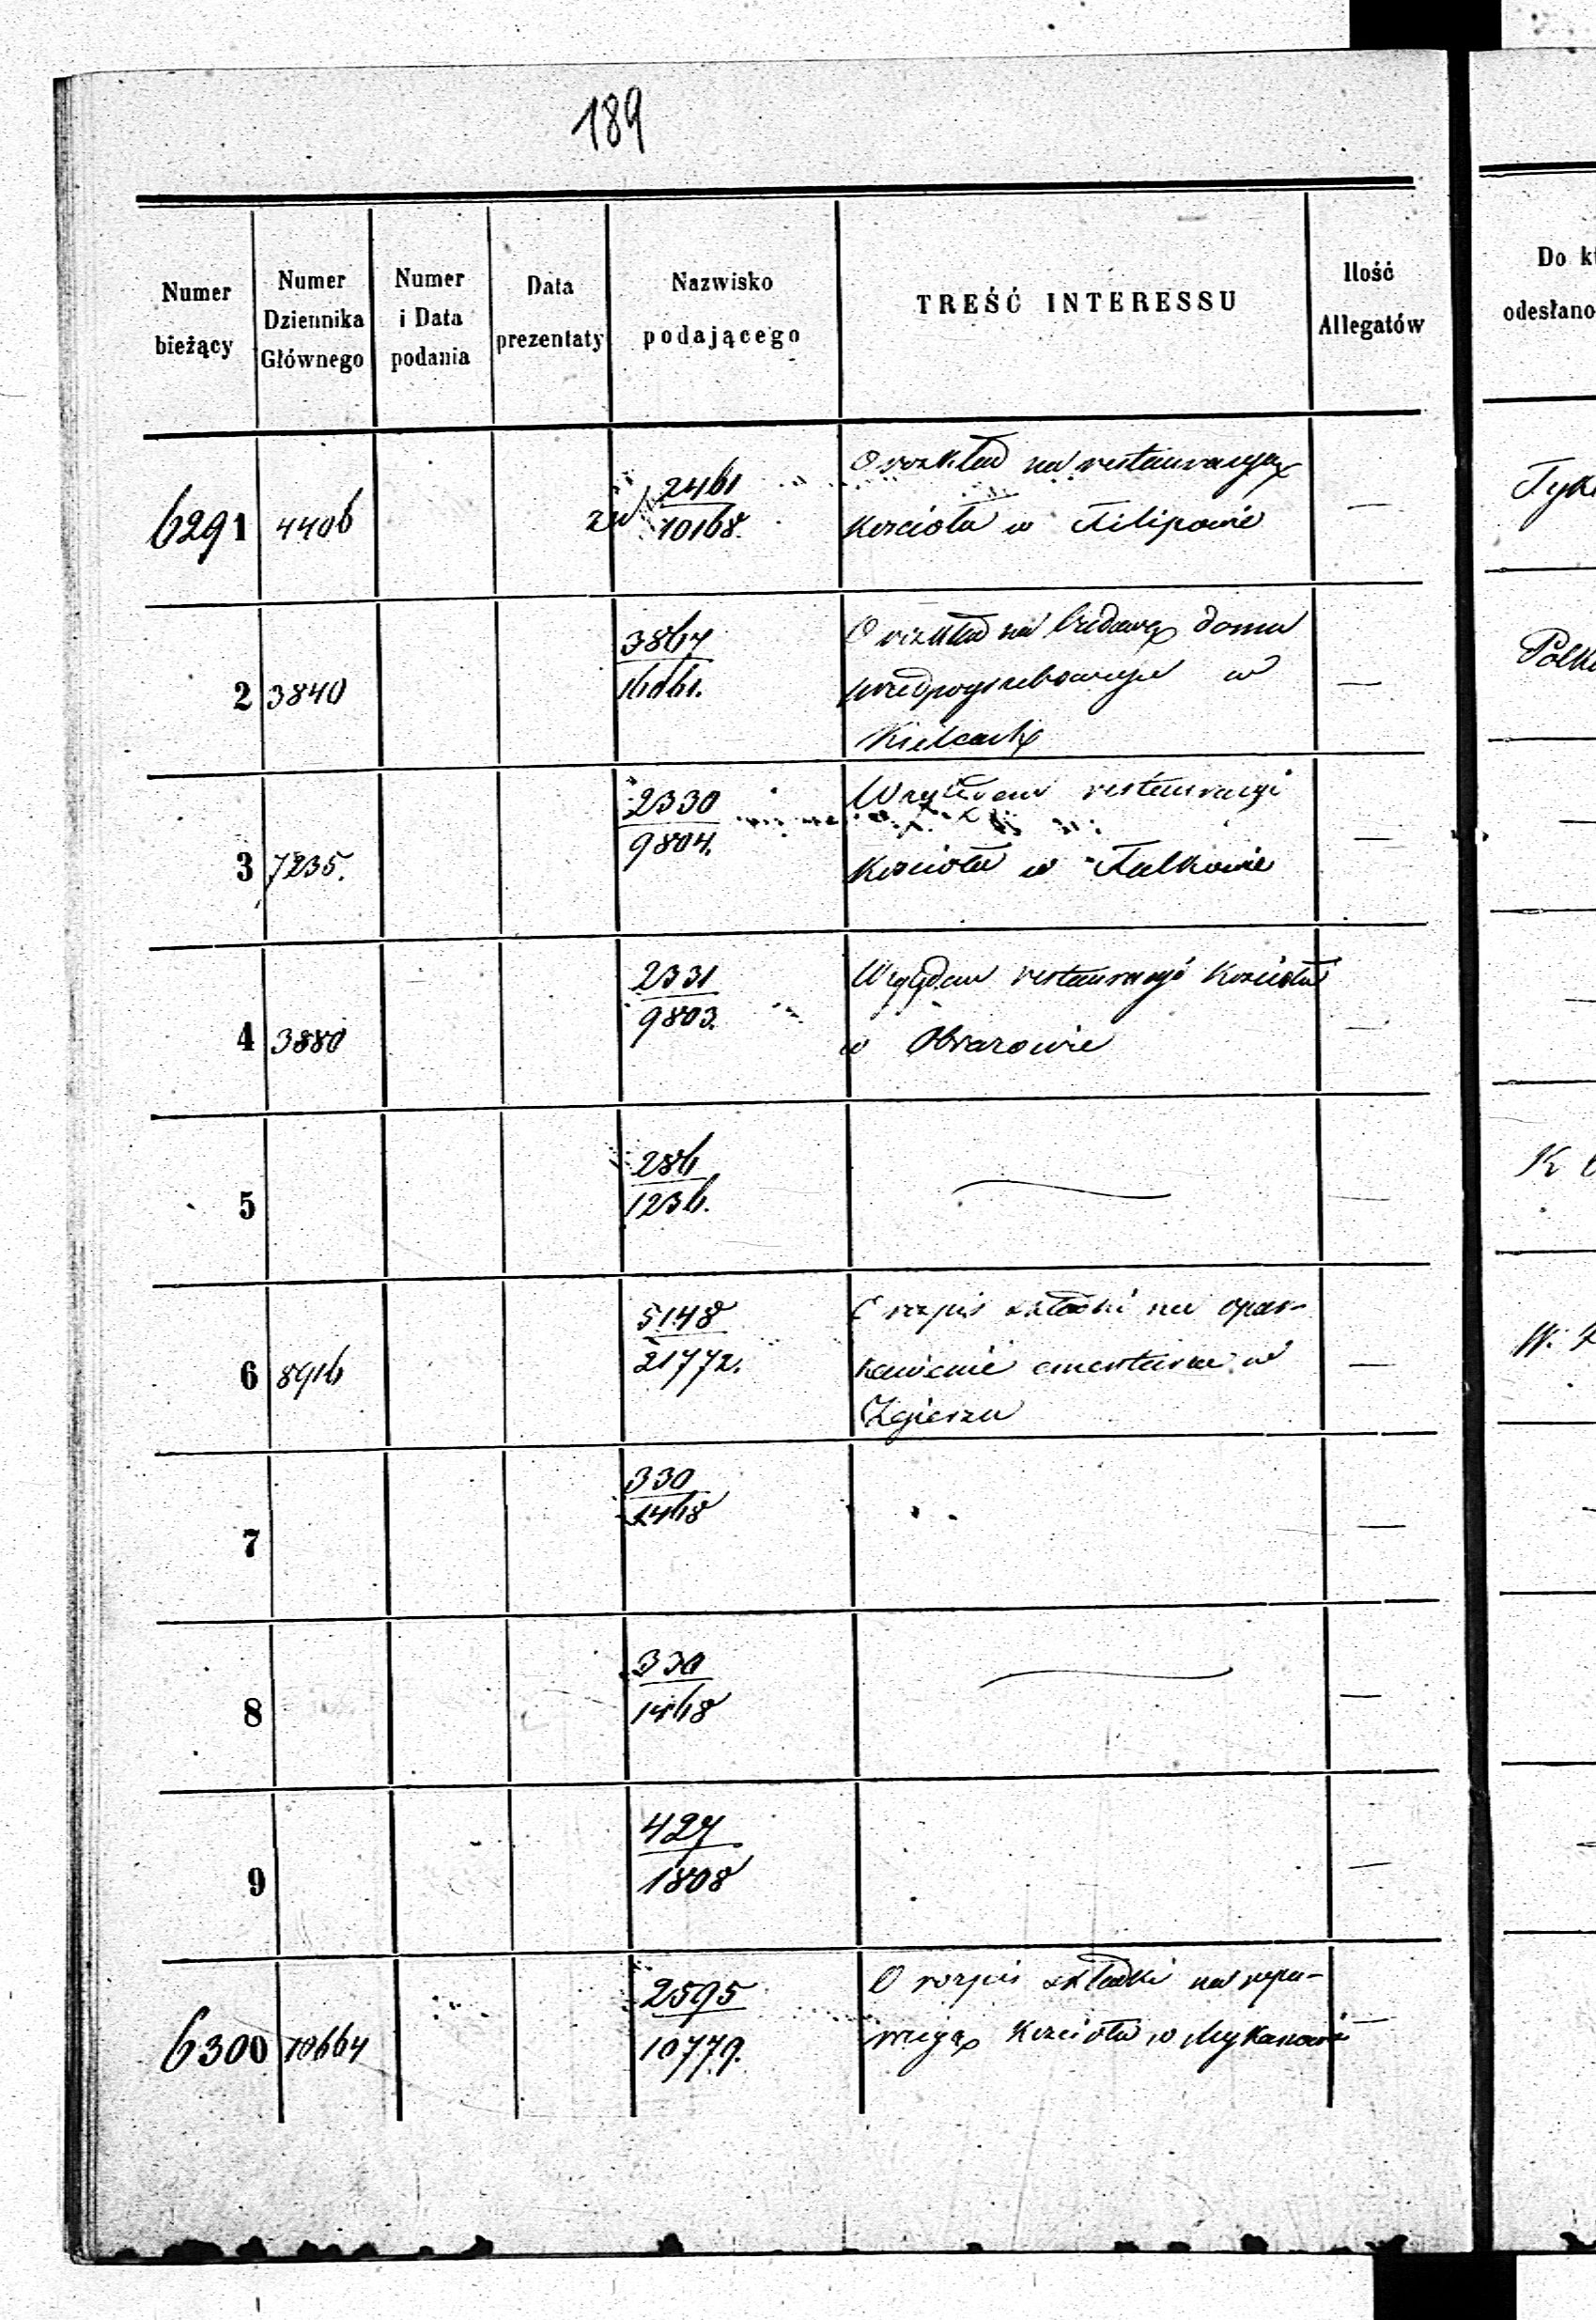 189
Numer bieżący
Numer Dziennika Głównego
Numer i Data podania
Data prezentaty
Nazwisko podającego
TREŚĆ INTERESSU
Ilość Allegatów
Do k
odesłano
6291 4406 za 2461 O rozkład na restauracyą —
10168. Kościoła w Filipowie
2 3840 3867 O rozkład na budowę domu —
16061. przedpogrzebowego w
Kielcach
3 7235. 2330 Względem restauracyi —
9804. Kościoła w Falkowie
4 3880 2331 Względem restauracyi Kościoła —
9803. w Obrazowie
5 286 — —
1236.
6 8916 5148 O rozpis składki na opar- —
21772. kanienie cmentarza w
Zgierzu
7 330 —
1468
8 330 — —
1468
9 427 —
1808
6300 10664 2595 O rozpis składki na repa- —
10779. racyą Kościoła w Mykanowie